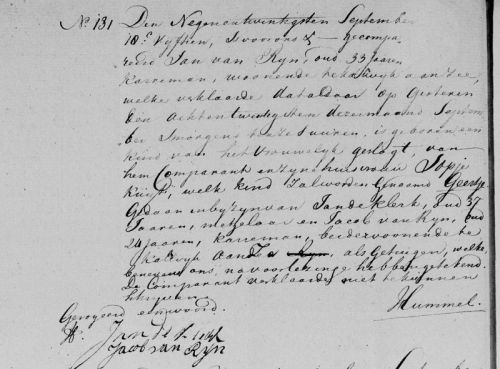 No. 181 Den Negenentwintigsten September
18c Vyftien, is voor ons gecompa
reerd Jan van Ryn, oud 33 Jaaren
Karreman, woonende te Katwyk aan Zee,
welke verklaarde dat aldaar op Gisteren
den achtentwintigsten dezer maand Septem
ber Smorgens ten zes uuren, is geboren een
kind van het Vrouwelyk geslagt, van
hem Comparant en zyn huisvrouw Jopje
Kuyt, welk kind zal worden Genaamd Geertje
Gedaan in bijzyn van Jan de Kerk, oud 37
Jaaren, metzelaar en Jacob van Ryn, oud
24 jaaren, Karreman, beide woonende te
Katwyk aan Zee, als Getuigen, welke
benevens ons, na voorlezinge hebben getekend.
De Comparant verklaarde niet te kunnen
schryven.
Geroyeerd een woord.
Hummel.
Jan de
Jacob van Ryn